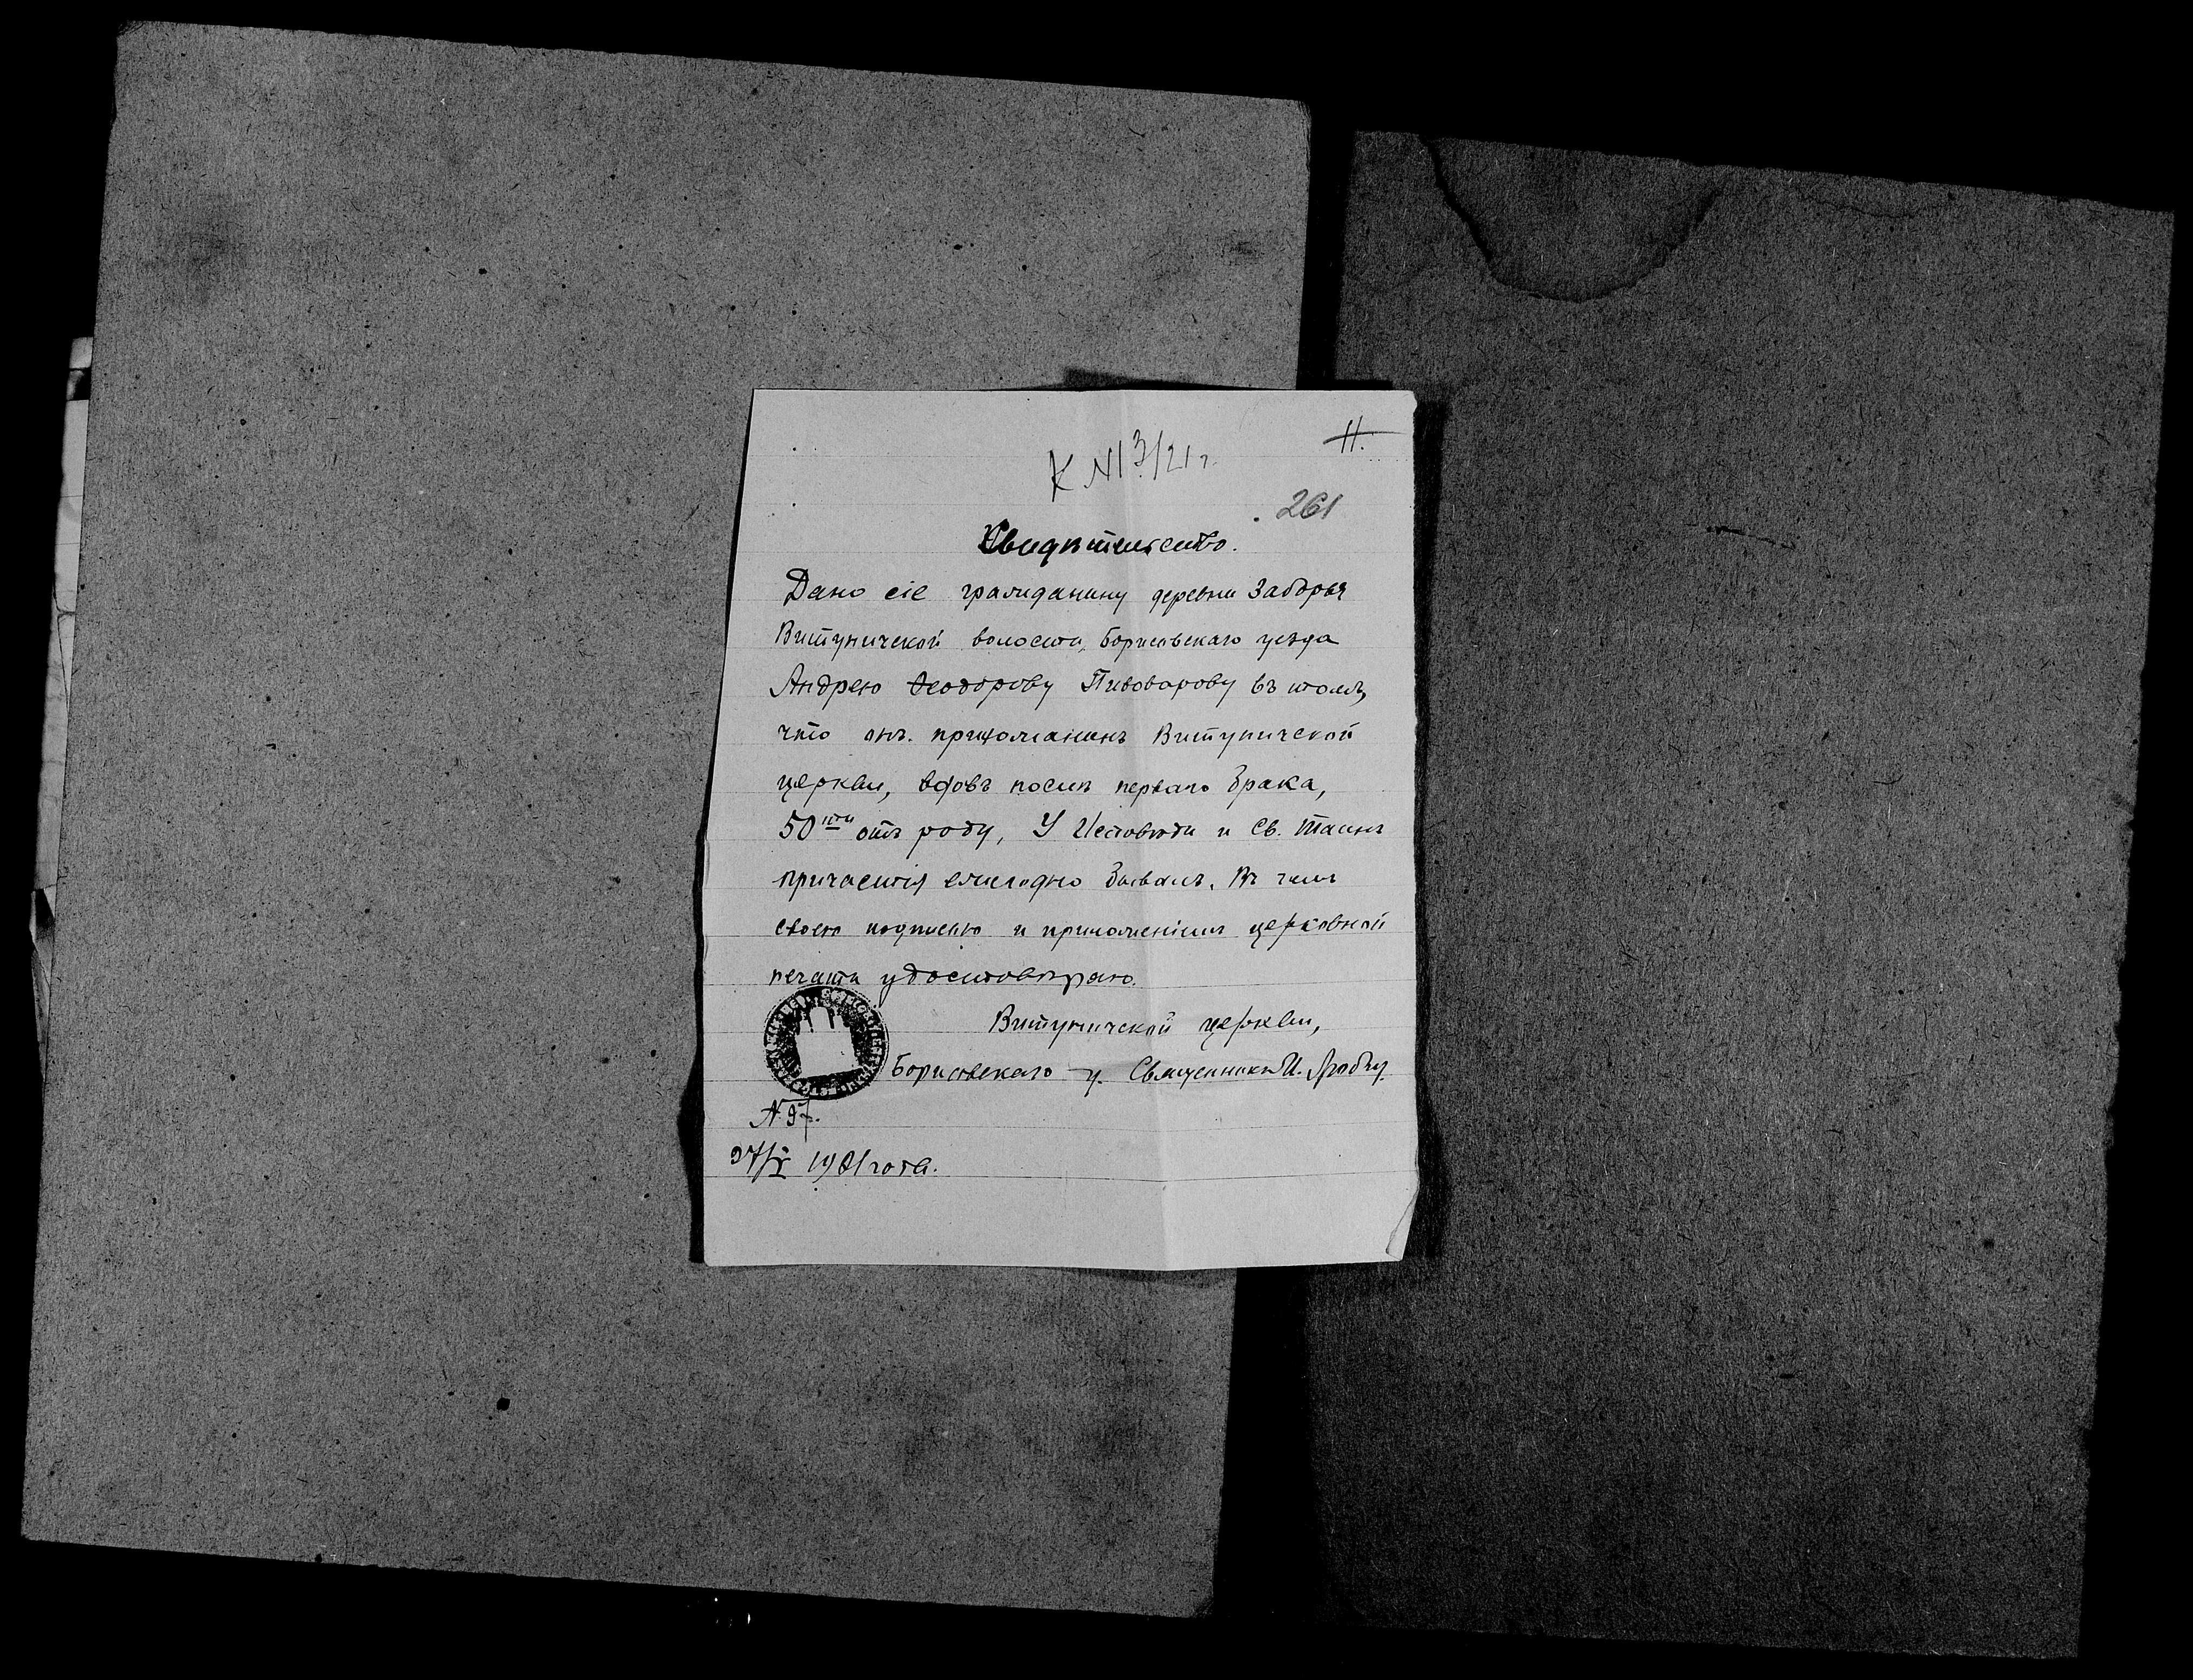 11.
К №13/21 г.
261
Свидѣтельство.
Дано сіе гражданину деревни Заборья
Витуничской волости, Борисовскаго уезда
Андрею Ѳеодорову Пивоварову въ томъ,
что онъ прихожанинъ Витуничской
церкви, вдовъ послѣ перваго брака,
50ти отъ роду, У Исповѣди и Св. Таинъ
причастія ежегодно бывалъ. Въ чемъ
своею подписью и приложеніемъ церковной
печати удостовѣряю.
Витуничской церкви,
Борисовскаго у. Священникъ И.
№
1921 года.